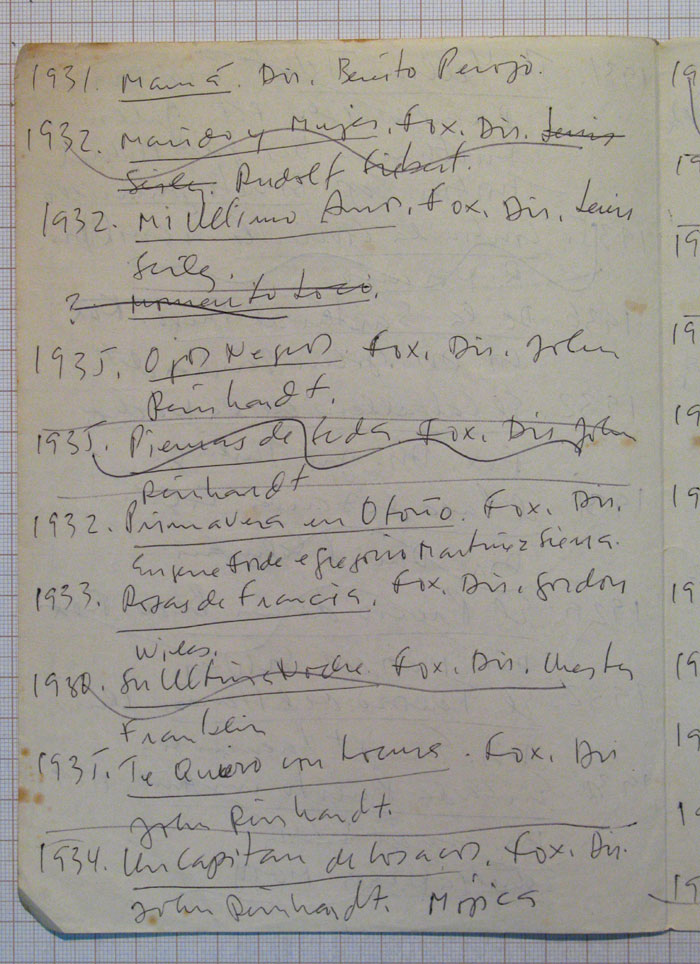 1931. Mamá. Dir. Benito Perojo.
1932. Marido y Mujer. Fox. Dir. Lewis
Seiley. Rudolf Siebert.
1932. Mi Ultimo Amor. Fox. Dir. Lewis
Seiley.
? Momento Loco.
1935. Ojos Negros. Fox. Dir. John
Reinhardt.
1935. Piernas de Seda Fox. Dir John
Reinhardt
1932. Primavera en Otoño. Fox. Dir.
Eugene Forde e Gregorio Martinez Sierra.
1933. Rosas de Francia. Fox. Dir. Gordon
Wiles.
Su Ultima Noche Fox. Dir. Chester
Franklin
1935. Te Quiero con Locura. Fox. Dir
John Reinhardt.
1934. Un Capitan de Cosacos. Fox. Dir.
John Reinhardt. Mojica